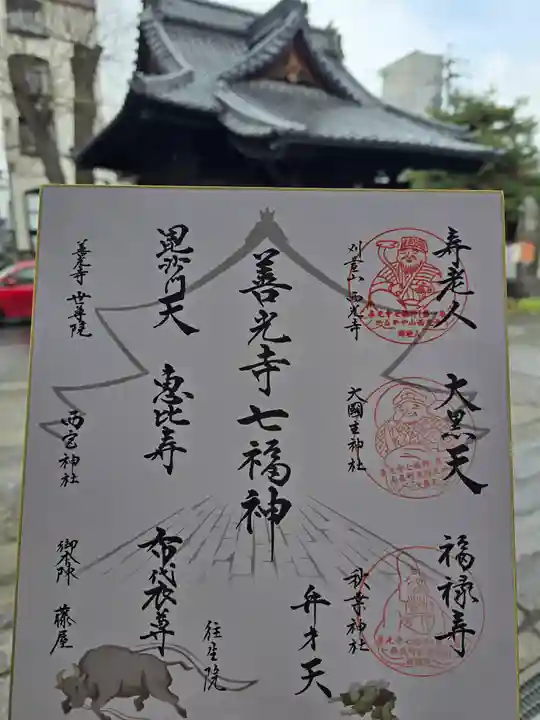 寿老人
刈萱山 西光寺
大黒天
大國主神社
福禄寿
秋葉神社
弁才天
往生院
善光寺七福神
毘沙門天
善光寺 世尊院
恵比寿
西宮神社
布袋尊
御本陣 藤屋